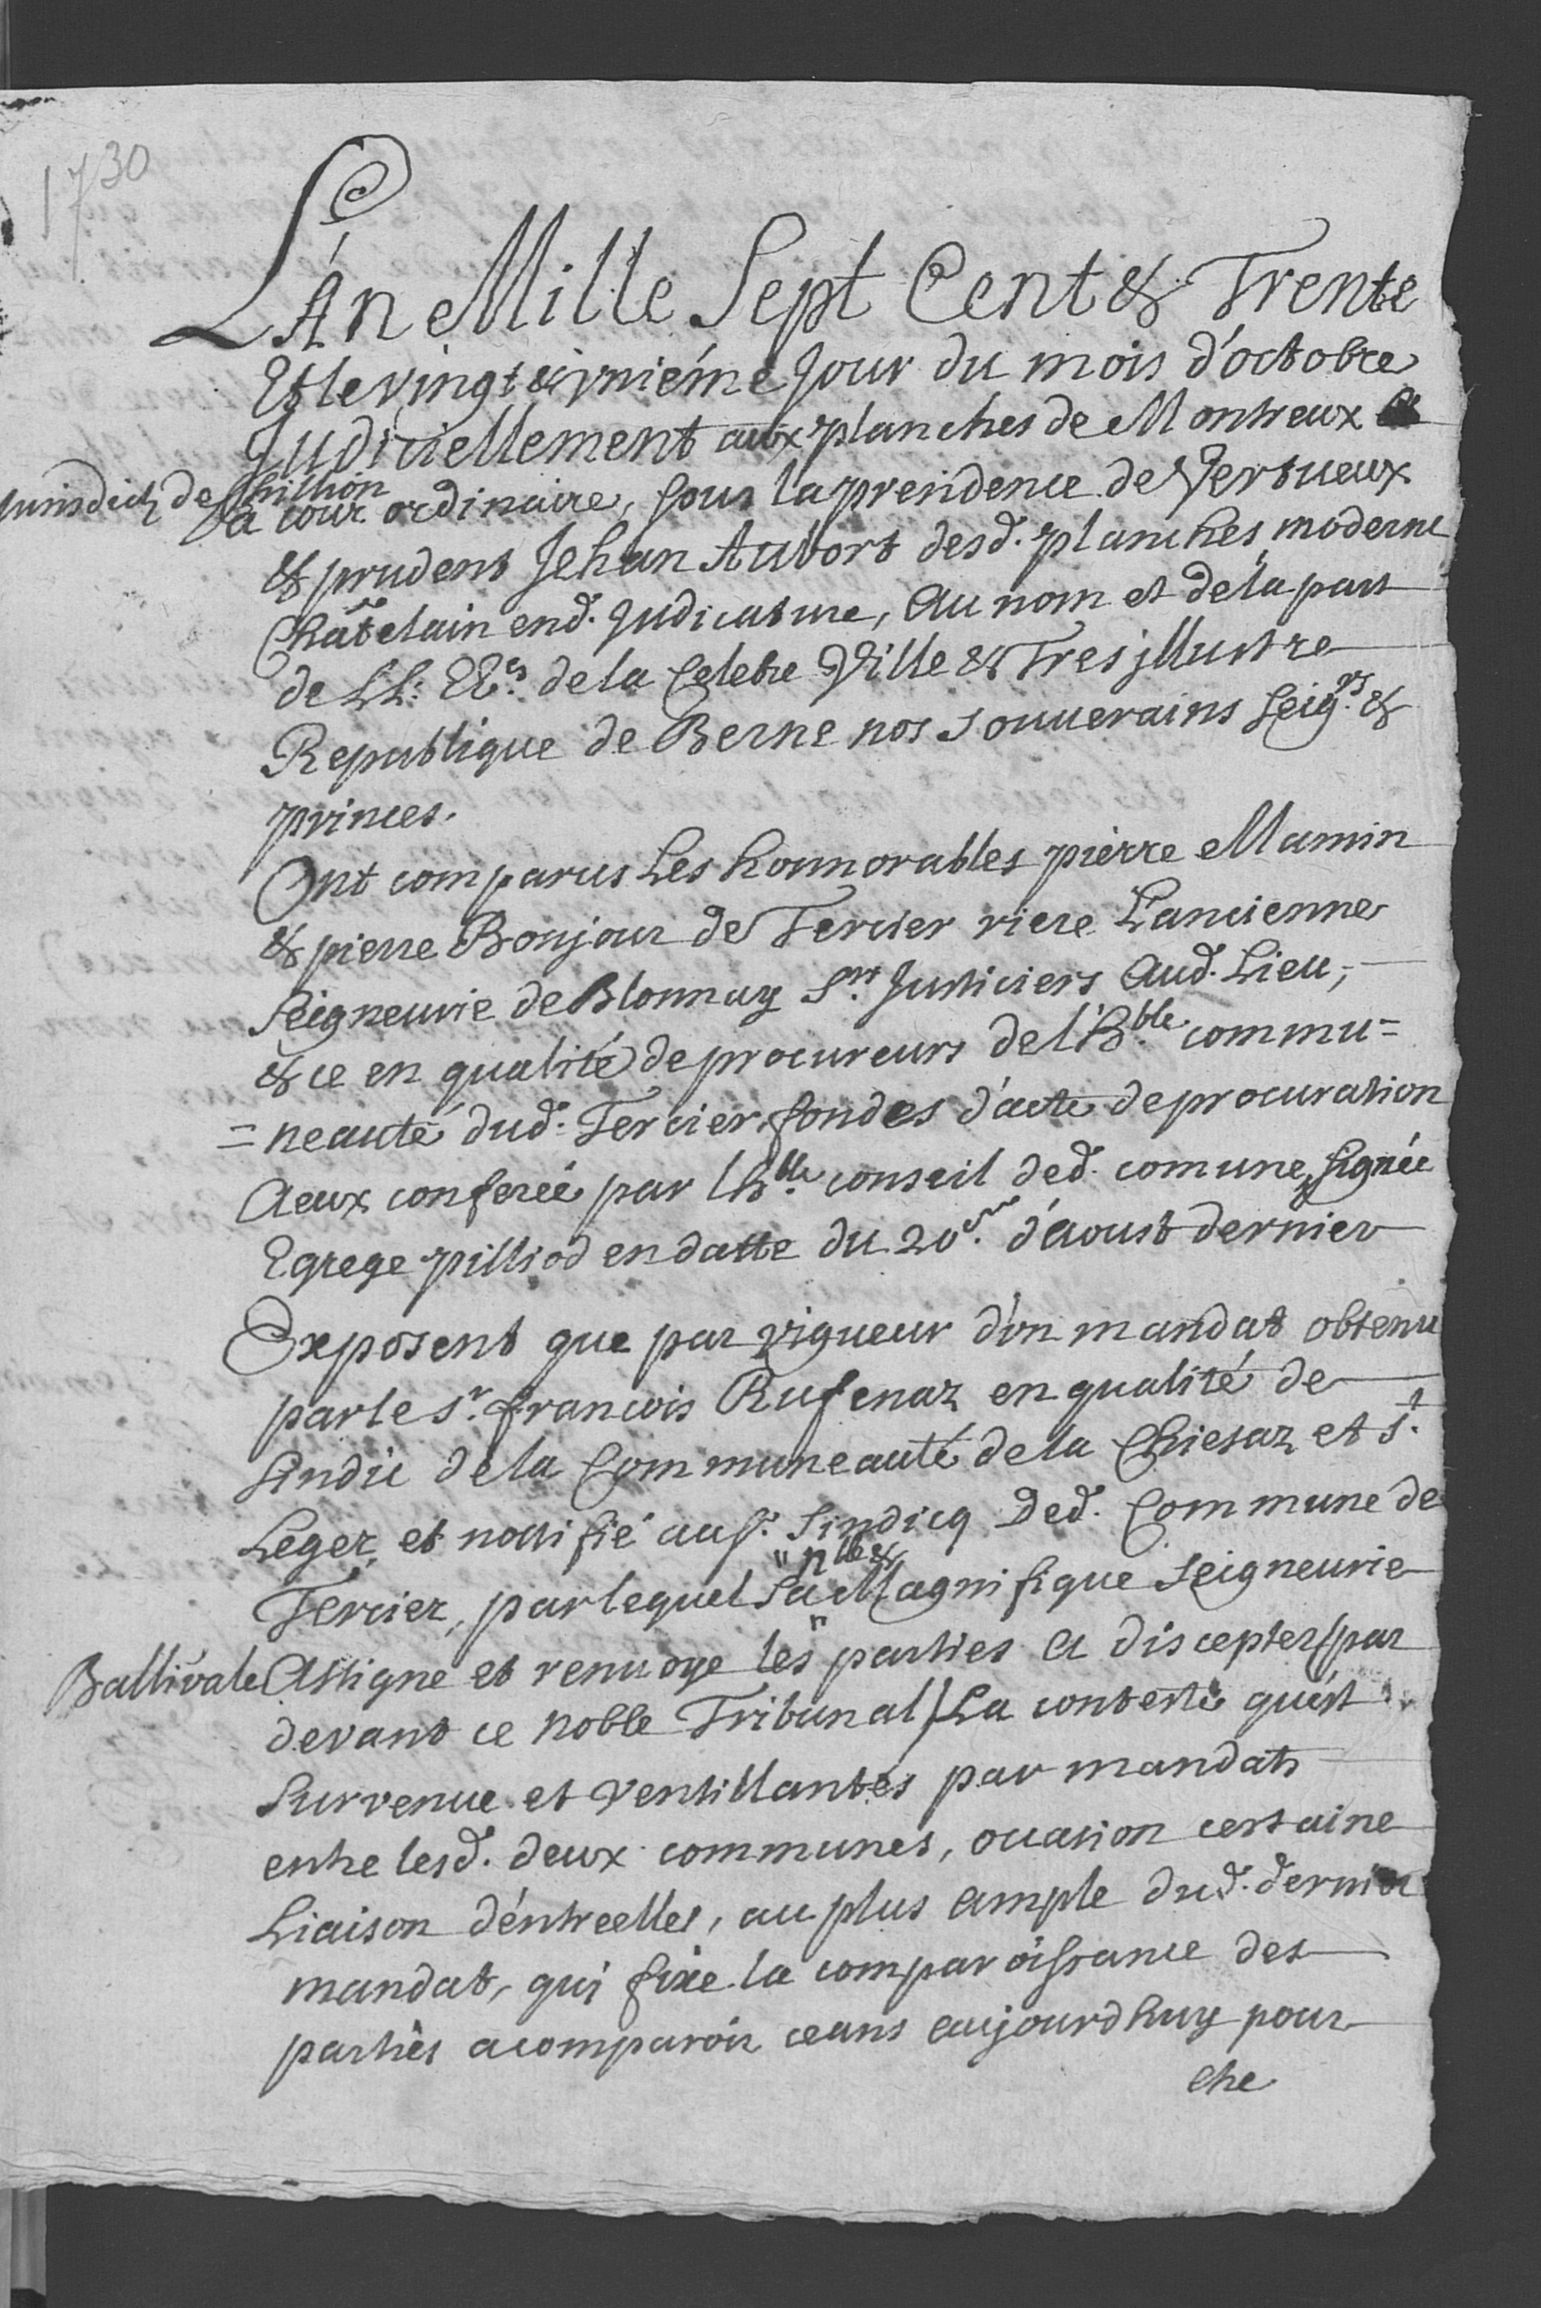 1730
L'An Mille Sept Cent & Trente
Et le vingt & vniéme Jour du mois d'octobre
Judiciellement aux planches de Montreux a
Jurisdict de Chillion
la cour ordinaire, sous la presidence de Vertueux
& prudent Jehan Aubort desd. planches moderne
Chatelain end. Judicature, Au nom et de la part
de LL: EEs. de la Celebre Ville & Tres jllustre
Republique de Berne nos souuerains Seigrs. &
princes.
Ont comparus Les honnorables pierre Mamin
& pierre Bonjour de Tercier riere L'ancienne
Seigneurie de Blonnay Srs. Justiciers Aud. Lieu,
& ce en qualité de procureurs de l'hble. commu=
=neauté dud. Tercier, fondes d'acte de procuration
a eux conferée par lhble. conseil ded. comune, signée
Egrege pilliod en datte du 20me. d'aoust dernier
Exposent que par vigueur d'vn mandat obtenu
par le Sr. francois Rufenaz en qualité de
Sindic de la Communeauté de la Chiesaz et St.
Leger, et nottifié au Sr. Sindicq Ded. Commune de
Tercier, par lequel Sa nble & Magnifique Seigneurie
Ballivale Assigne et renuoye les parties a discepter (par
devant ce noble Tribunal) La conteste qu'est
survenue et ventillantes par mandats
entre lesd. deux communes, ocasion certaine
Liaison d'entreelles, au plus ample dud. dernier
mandat, qui fixe la comparoissance des
parties a comparoir ceans aujourdhuy pour
etre